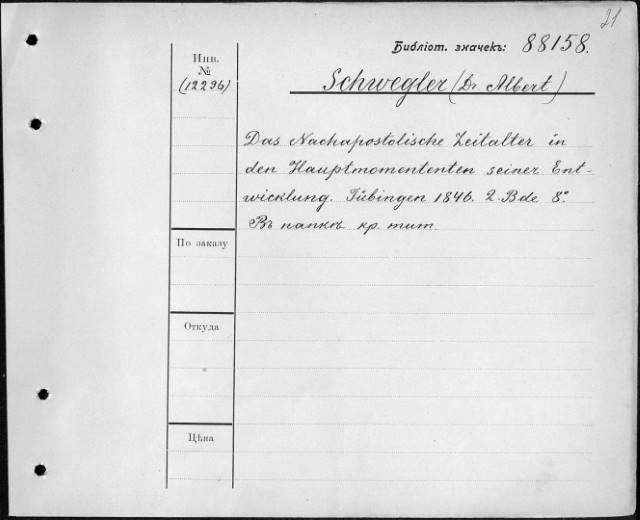 21
Библіот. значекъ: 88158.
Инв.
№
(12296)
Schwegler (Dr Albert)
Das Nachapostolische Zeitalter in
den Hauptmomententen seiner Ent-
wicklung. Tübingen 1846. 2. Bde 8°.
Въ папкѣ кр. тит.
По заказу
Откуда
Цѣна